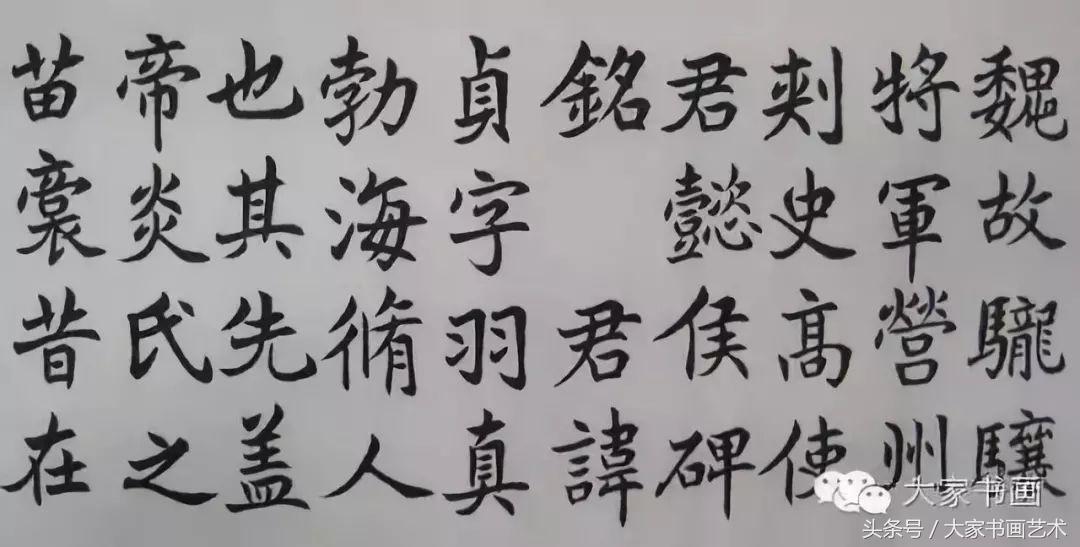 魏故䮾驤
將軍營州
刺史高使
君懿侯碑
銘 君諱
貞字羽真
勃海脩人
也其先盖
帝炎氏之
苗裔昔在
大家书画
头条号／大家书画艺术